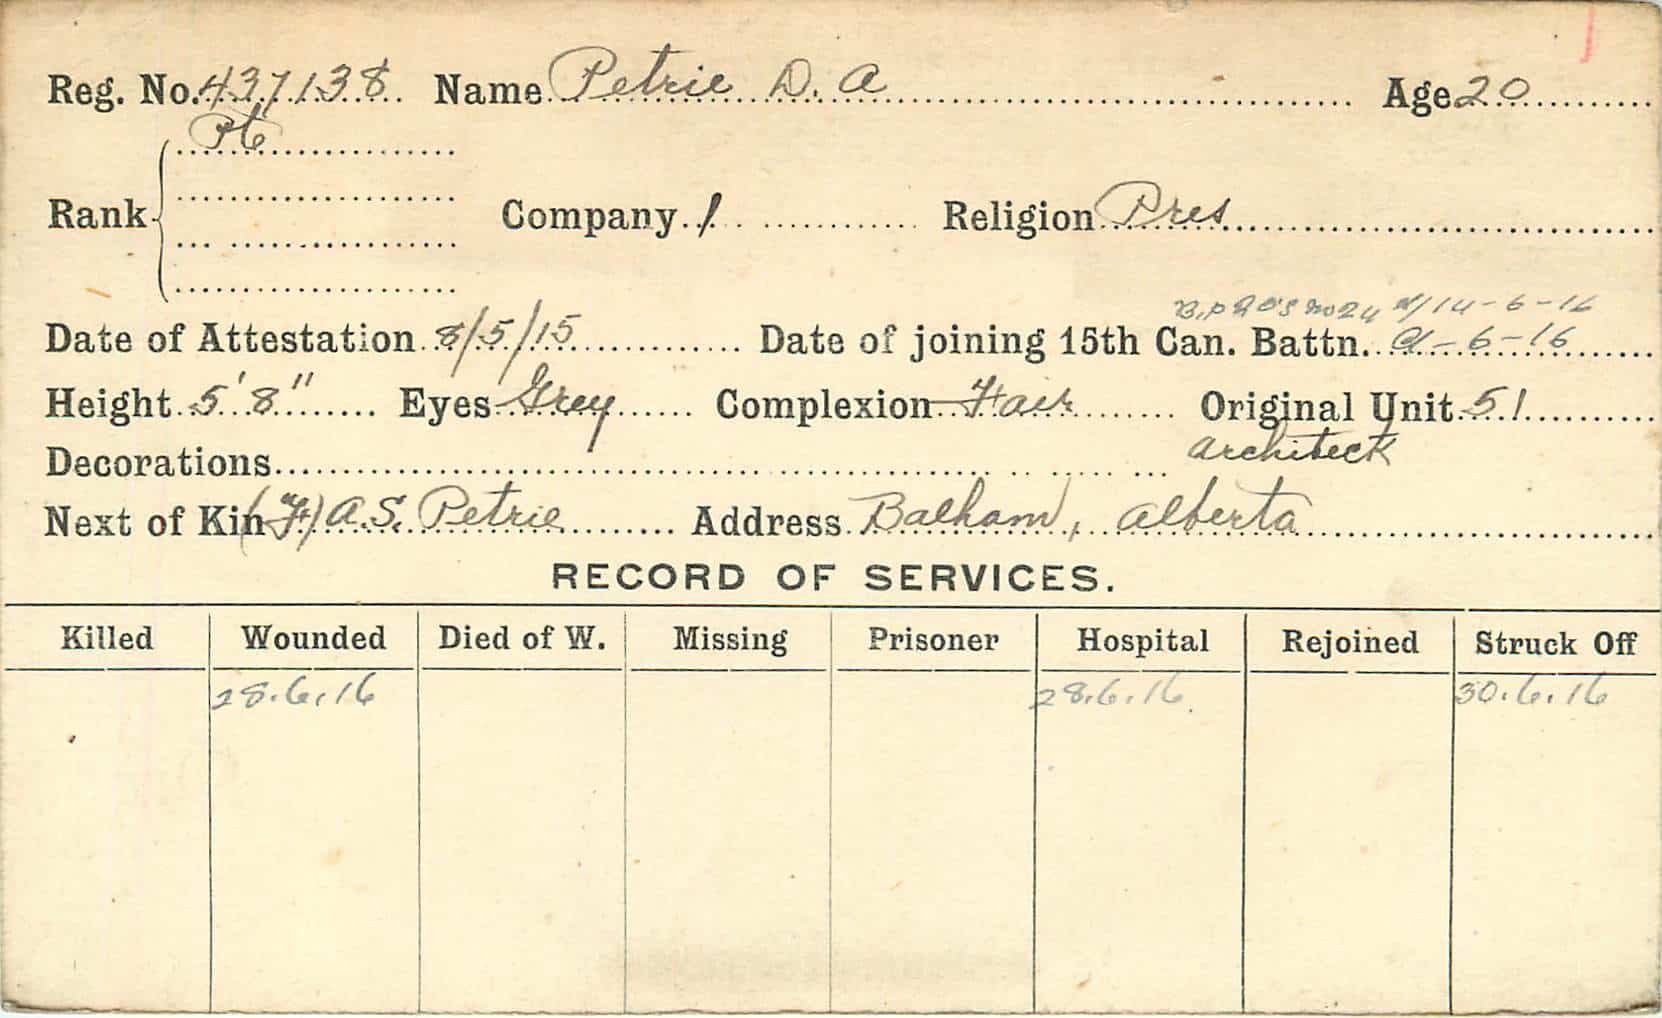 Reg. No. 437138 Name Petrie D. A Age 20
Pte
Rank Company 1 Religion Pres
14-6-16
Date of Attestation 8/5/15 Date of joining 15th Can. Battn. 9-6-16
Height 5'8" Eyes Grey Complexion Fair Original Unit 51
Decorations architeck
Next of Kin (F) A.S. Petrie Address Balham, Alberta
RECORD OF SERVICES.
Killed Wounded Died of W. Missing Prisoner Hospital Rejoined Struck Off
28.6.16 28.6.16. 30.6.16